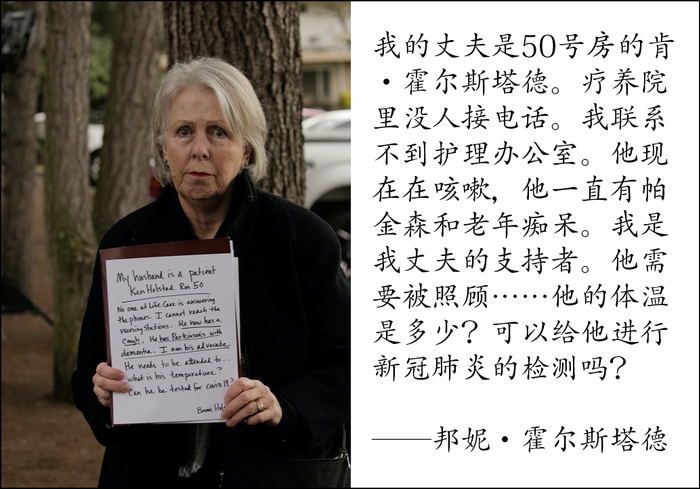 My husband is a patient
Ken Holstad Rm 50
No one at Life Care is answering
the phones. I cannot reach the
nursing stations. He now has a
cough. He has Parkinsons with
dementia. I am his advocate.
He needs to be attended to...
what is his temperature?
Can he be tested for covid 19?
我的丈夫是50号房的肯
·霍尔斯塔德。疗养院
里没人接电话。我联系
不到护理办公室。他现
在在咳嗽，他一直有帕
金森和老年痴呆。我是
我丈夫的支持者。他需
要被照顾……他的体温
是多少？可以给他进行
新冠肺炎的检测吗？
——邦妮·霍尔斯塔德